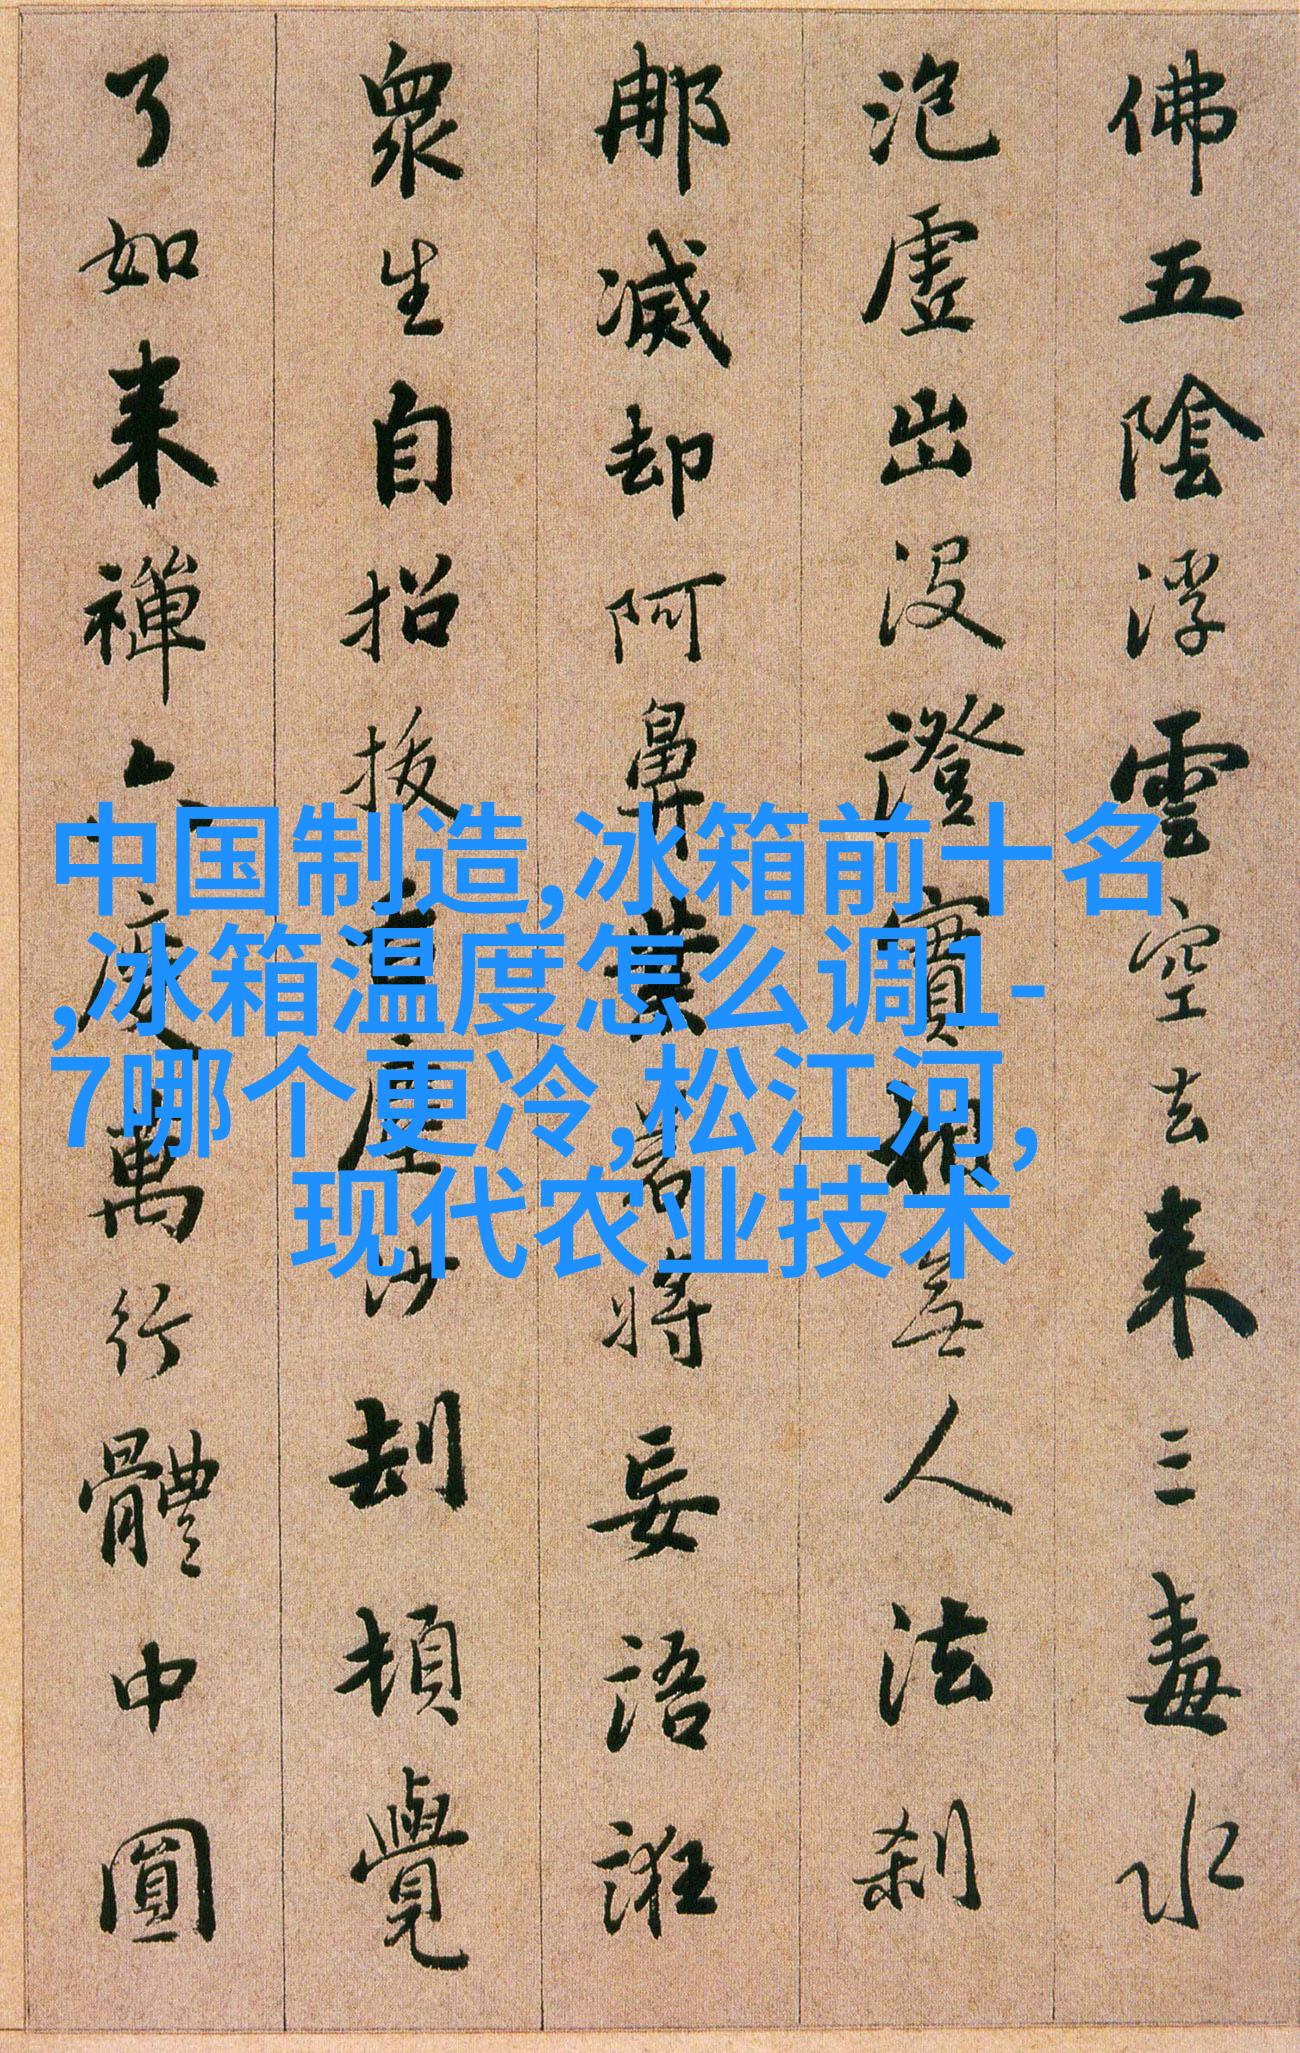 佛五陰浮雲空去来三毒水
泡虛出没證實相無人法刹
那滅却阿鼻業若將妄語誑
衆生自招拔舌塵沙劫頓覺
了如来禪六度萬行體中圓
中国制造,冰箱前十名
,冰箱温度怎么调1-
7哪个更冷,松江河,
现代农业技术